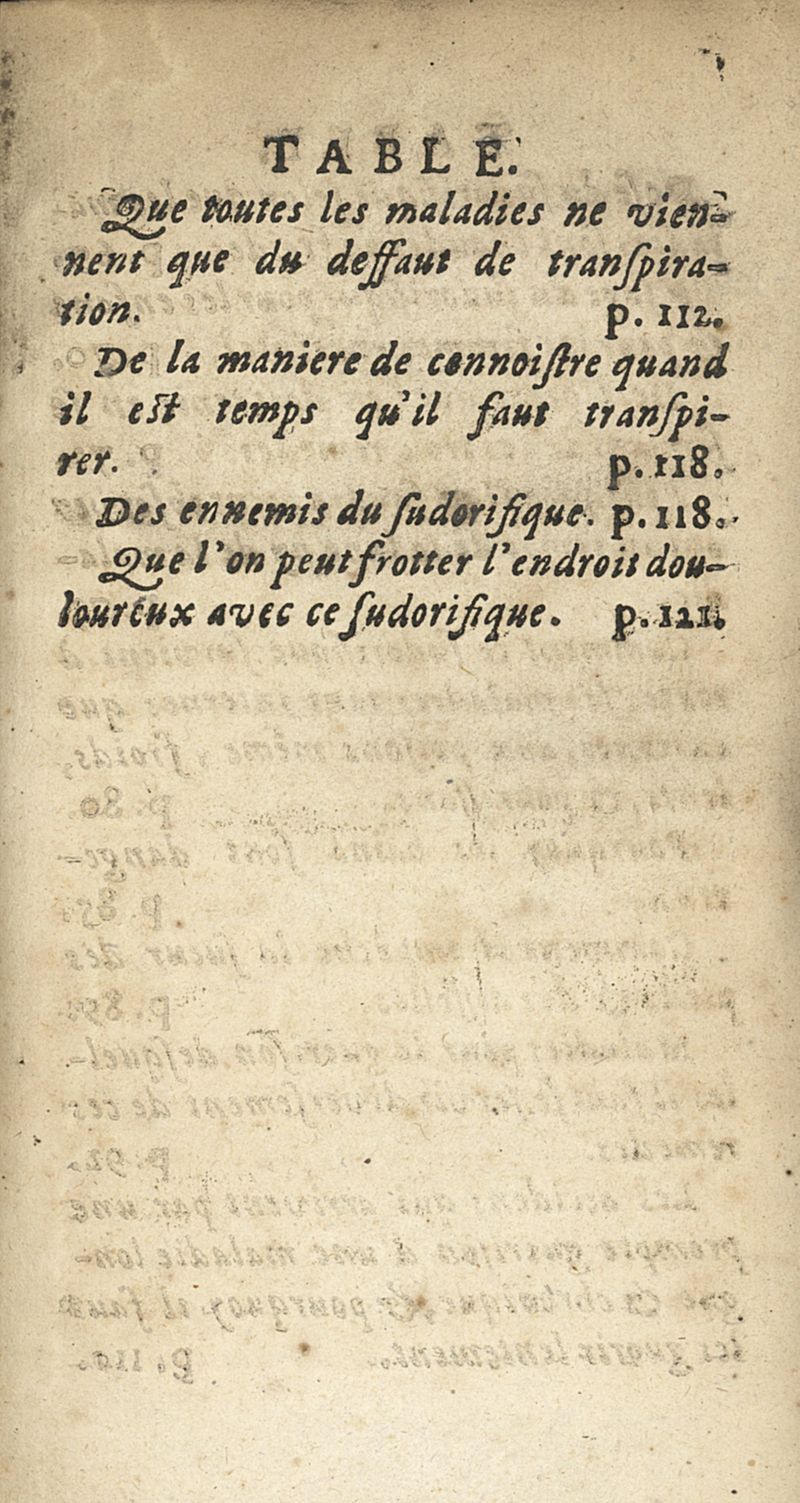 TABLE.
Que toutes les maladies ne vien-
nent que du deffaut de tranſpira-
tion. p. 112.
De la maniere de connoiſtre quand
il eſt temps qu'il faut tranſpi-
rer. p. 118.
Des ennemis du ſudorifique. p. 118.
Que l'on peut frotter l'endroit dou-
loureux avec ce ſudorifique. p. 121.